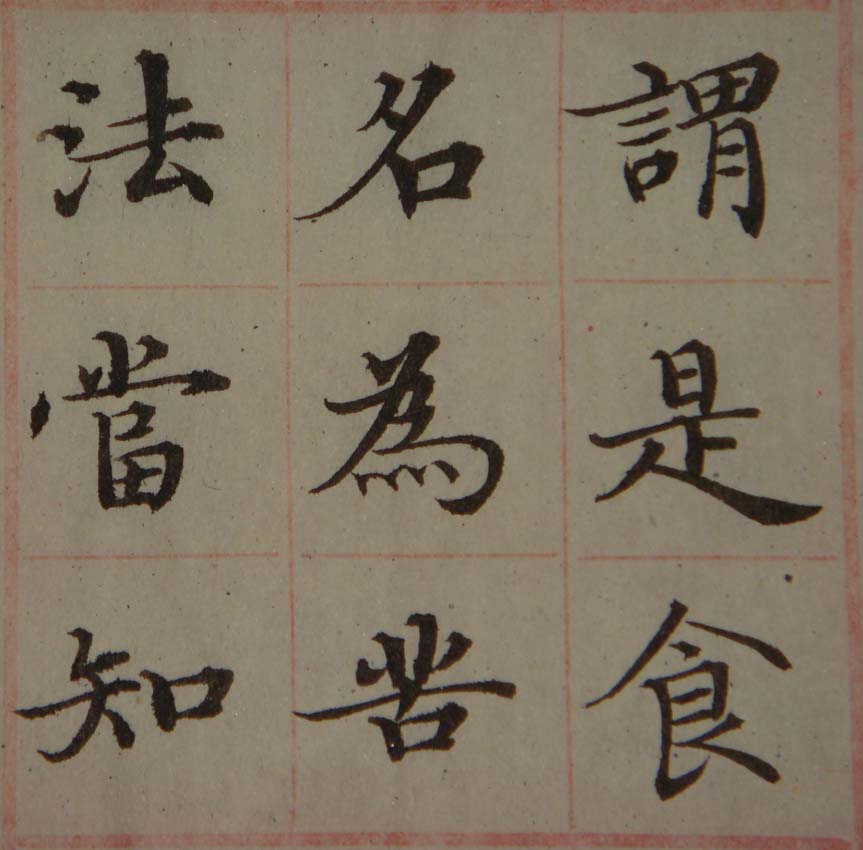 謂是食
名為苦
法當知